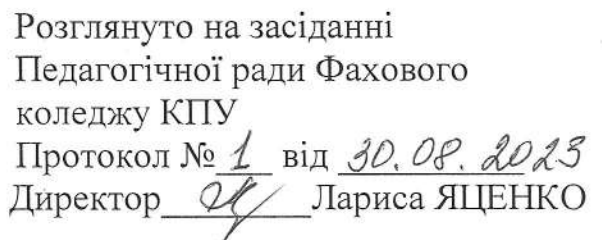 Розглянуто на засіданні
Педагогічної ради Фахового
коледжу КПУ
Протокол № 1 від 30.08.2023
Директор Лариса ЯЦЕНКО